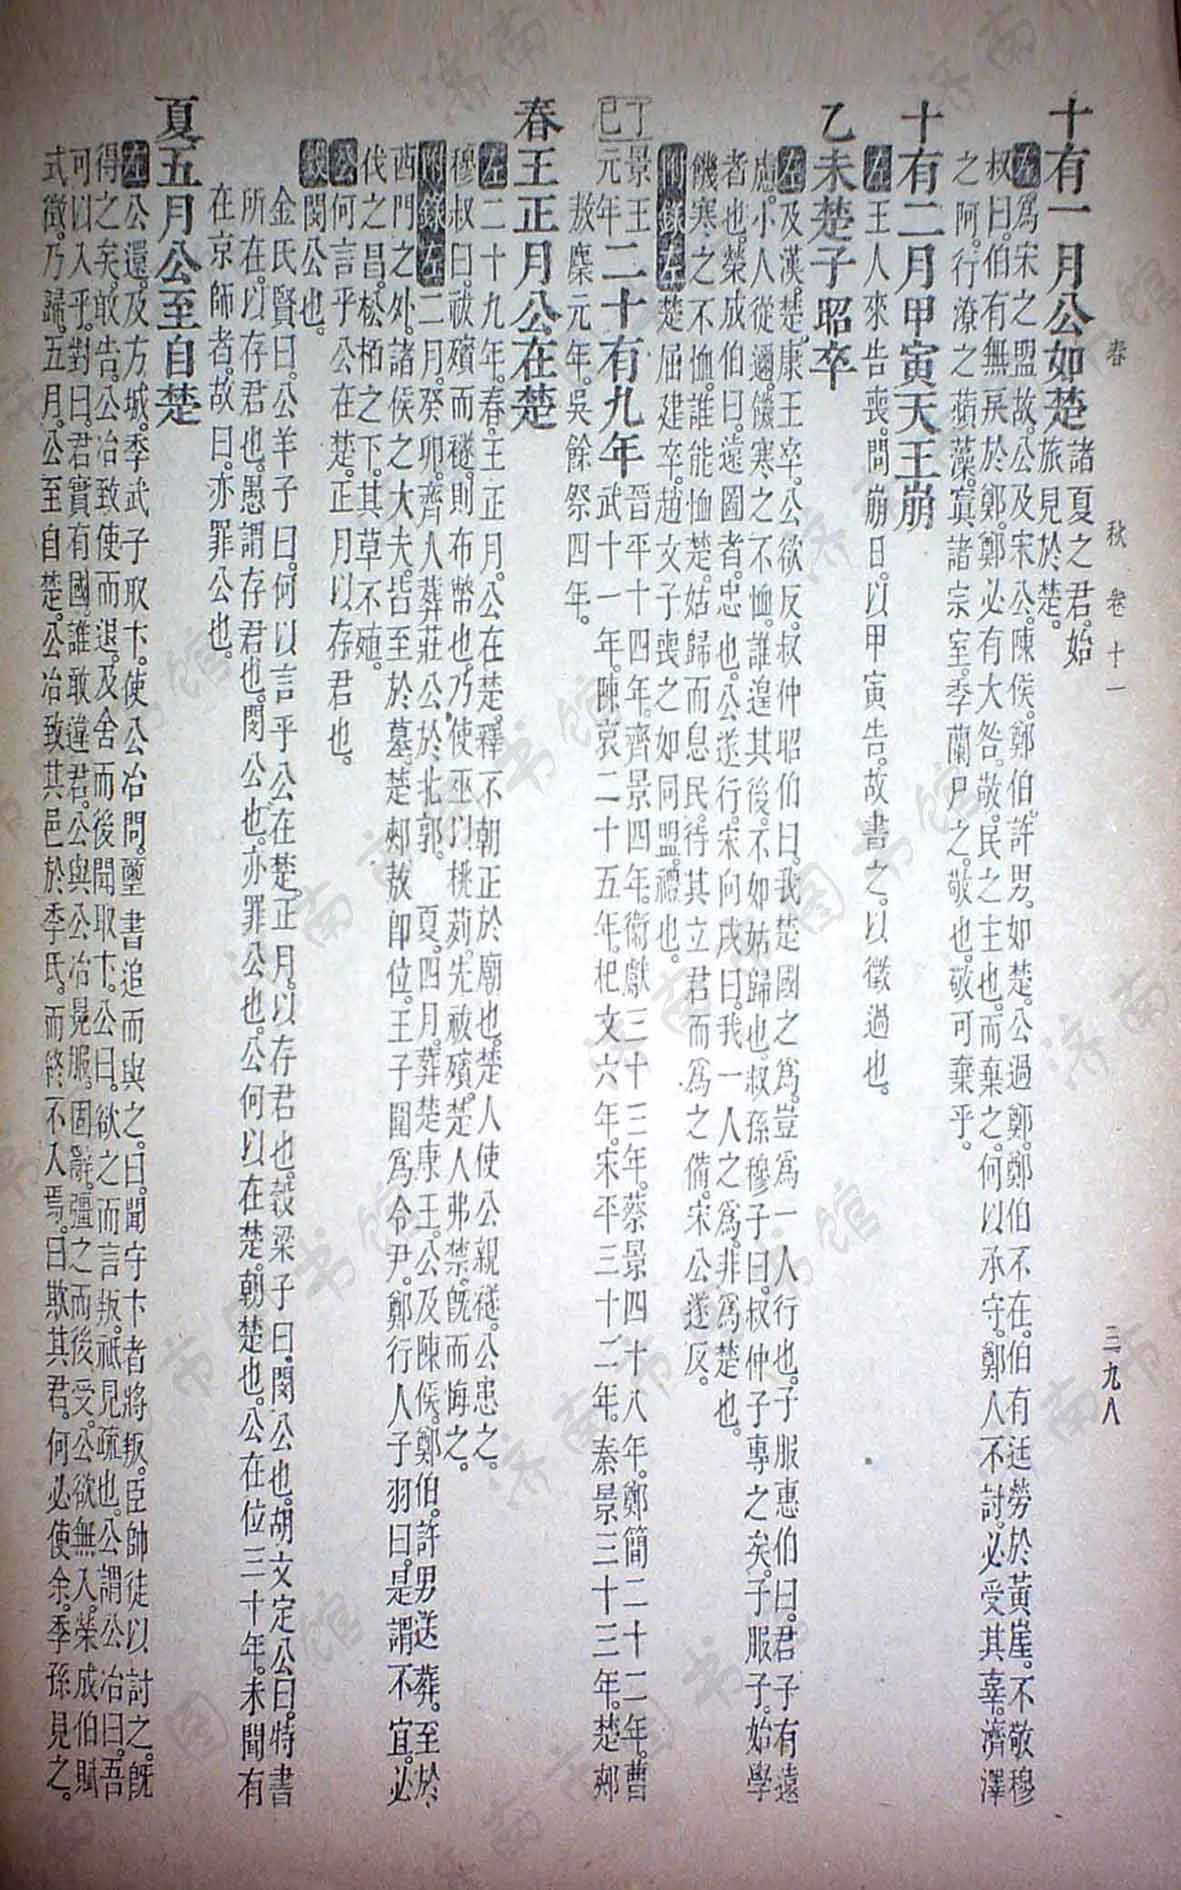 春 秋 卷十一 三九八
十有一月公如楚諸夏之君。始
旅見於楚。
左為宋之盟故。公及宋公。陳侯。鄭伯。許男。如楚。公過鄭。鄭伯不在。伯有廷勞於黃崖。不敬。穆
叔曰。伯有無戾於鄭。鄭必有大咎。敬。民之主也。而棄之。何以承守。鄭人不討。必受其辜。濟澤
之阿。行潦之蘋藻。寘諸宗室。季蘭尸之。敬也。敬可棄乎。
十有二月甲寅天王崩
左王人來告喪。問崩日。以甲寅告。故書之。以徵過也。
乙未楚子昭卒
左及漢。楚康王卒。公欲反。叔仲昭伯曰。我楚國之為。豈為一人行也。子服惠伯曰。君子有遠
慮。小人從邇。饑寒之不恤。誰遑其後。不如姑歸也。叔孫穆子曰。叔仲子專之矣。子服子。始學
者也。榮成伯曰。遠圖者。忠也。公遂行。宋向戌曰。我一人之為。非為楚也。
饑寒之不恤。誰能恤楚。姑歸而息民。待其立君而為之備。宋公遂反。
附錄左楚屈建卒。趙文子喪之如同盟。禮也。
丁巳景王元年二十有九年晉平十四年。齊景四年。衛獻。三十三年。蔡景四十八年。鄭簡二十二年。曹
武十一年。陳哀二十五年。杞文六年。宋平三十二年。秦景三十三年。楚郟
敖麇元年。吳餘祭四年。
春王正月公在楚
左二十九年。春。王正月。公在楚。釋不朝正於廟也。楚人使公親襚。公患之。
穆叔曰。祓殯而襚。則布幣也。乃使巫以桃茢。先祓殯。楚人弗禁。既而悔之。
附錄左二月。癸卯。齊人葬莊公於北郭。 夏。四月。葬楚康王。公及陳侯。鄭伯。許男送葬。至於
西門之外。諸侯之大夫。皆至於墓。楚郟敖即位。王子圍為令尹。鄭行人子羽曰。是謂不宜。必
代之昌。松柏之下。其草不殖。
公何言乎公在楚。正月以存君也。
穀閔公也。
金氏賢曰。公羊子曰。何以言乎公在楚。正月。以存君也。穀梁子曰。閔公也。胡文定公曰。特書
所在。以存君也。愚謂存君也。閔公也。亦罪公也。公何以在楚。朝楚也。公在位三十年。未聞有
在京師者。故曰。亦罪公也。
夏五月公至自楚
左公還。及方城。季武子取卞。使公冶問。璽書追而與之。曰。聞守卞者將叛。臣帥徒以討之。既
得之矣。敢告。公冶致使而退。及舍而後聞取卞。公曰。欲之而言叛。祇見疏也。公謂公冶曰。吾
可以入乎。對曰。君實有國。誰敢違君。公與公冶冕服。固辭。彊之而後受。公欲無入。榮成伯賦
式微。乃歸。五月。公至自楚。公冶致其邑於季氏。而終不入焉。曰欺其君。何必使余。季孫見之。